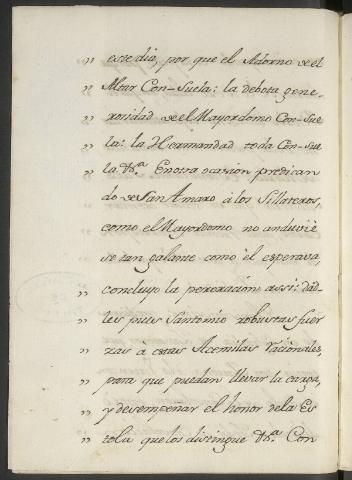 „ este dia, por que el Adorno de el
„ Altar Con-Suela: la debota gene-
„ rosidad de el Mayordomo Con-Sue
„ la: la Hermandad toda Con-Sue
la &.ª En otra ocasión predican
do de San Amaro â los Silleteros,
como el Mayordomo no anduvie
se tan galante como èl esperava,
„ concluyo la peroración assi: dad-
„ les pues Santo mio robustas fuer
„ zas â estas Acemilas racionales,
„ para que puedan llevar la carga,
„ y desempeñar el honor de la Es
„ tola que los distingue &.ª Con